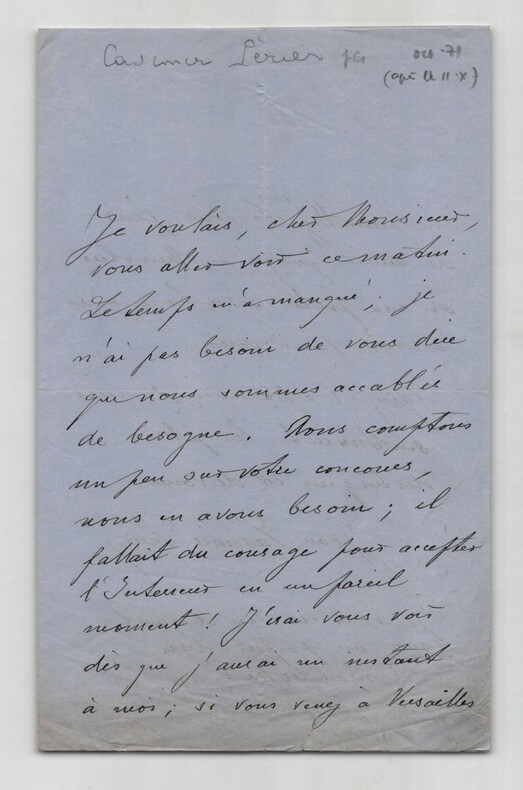 Casimir Périer
oct-71
(après le 11-X)
Je voulais, cher Monsieur,
vous aller voir ce matin.
Le temps m'a manqué ; je
n'ai pas besoin de vous dire
que nous sommes accablés
de besogne. Nous comptons
un peu sur votre concours,
nous en avons besoin ; il
fallait du courage pour accepter
l'Intérieur en un pareil
moment ! J'irai vous voir
dès que j'aurai un instant
à moi ; si vous venez à Versailles